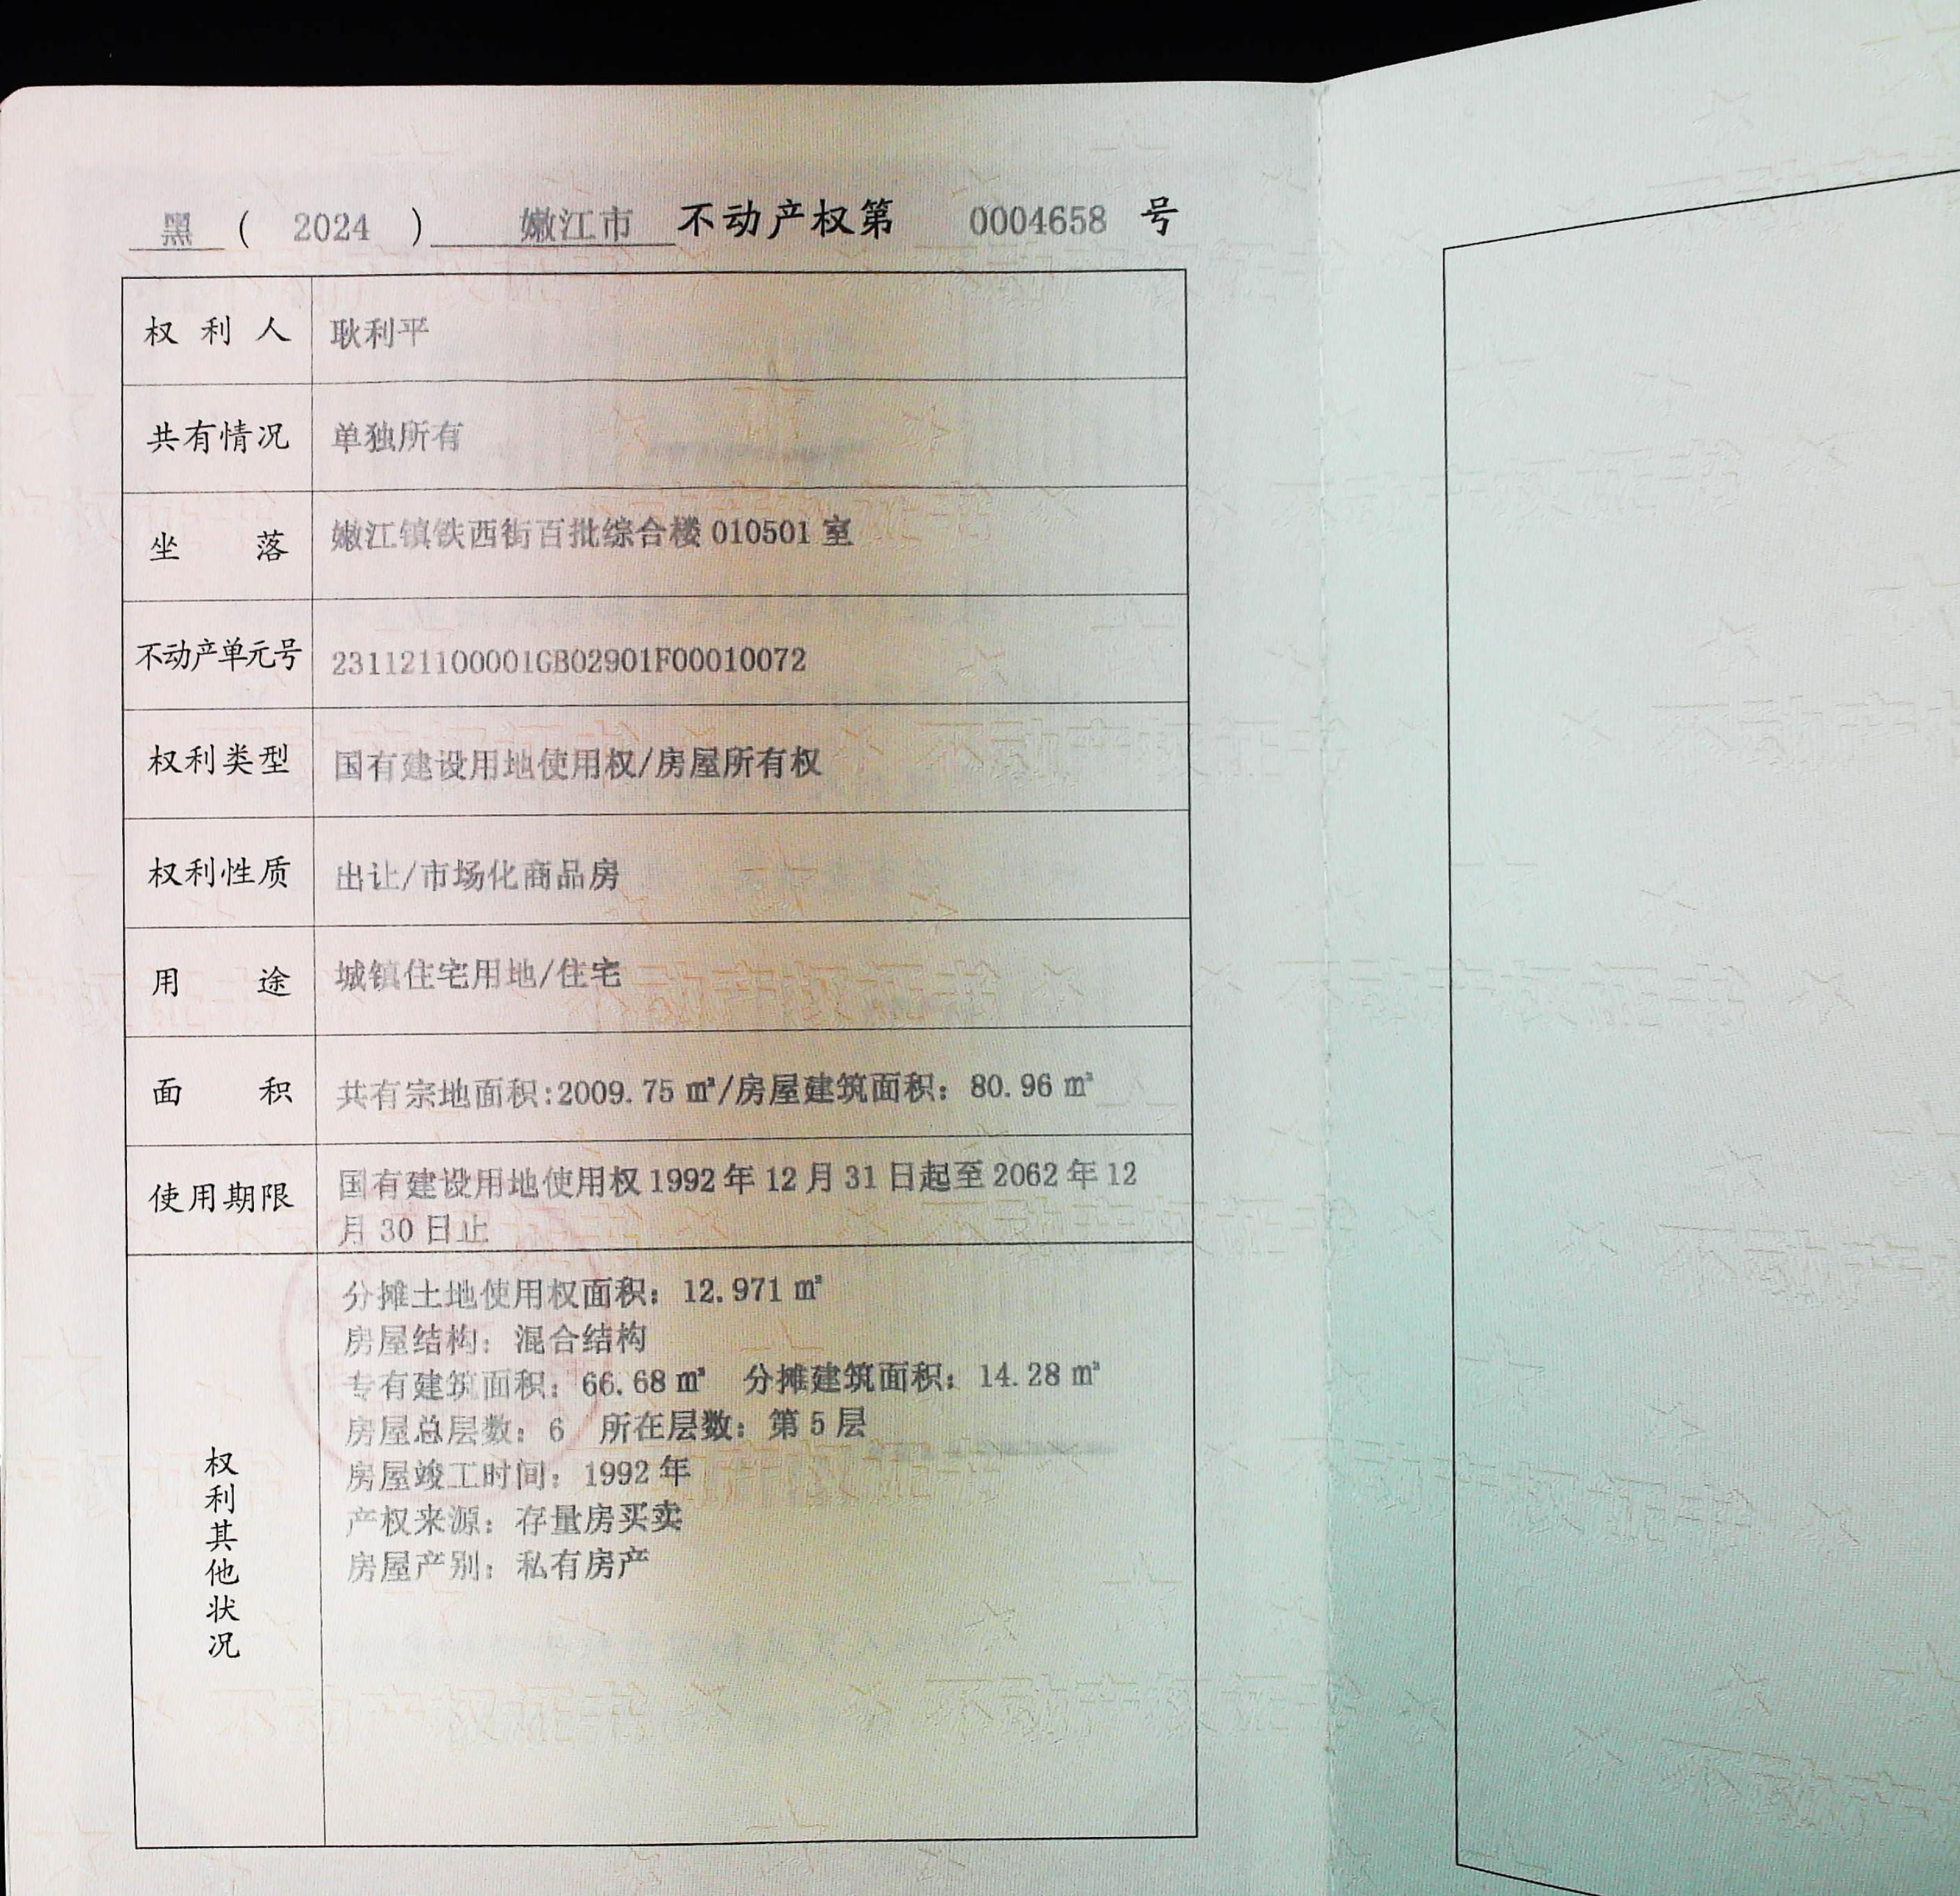 黑 ( 2024 ) 嫩江市 不动产权第 0004658 号
权利人 耿利平
共有情况 单独所有
坐落 嫩江镇铁西街百批综合楼 010501 室
不动产单元号 231121100001GB02901F00010072
权利类型 国有建设用地使用权/房屋所有权
权利性质 出让/市场化商品房
用途 城镇住宅用地/住宅
面积 共有宗地面积:2009.75 ㎡/房屋建筑面积：80.96 ㎡
使用期限 国有建设用地使用权 1992 年 12 月 31 日起至 2062 年 12
月 30 日止
权利其他状况
分摊土地使用权面积：12.971 ㎡
房屋结构：混合结构
专有建筑面积：66.68 ㎡ 分摊建筑面积：14.28 ㎡
房屋总层数：6 所在层数：第 5 层
房屋竣工时间：1992 年
产权来源：存量房买卖
房屋产别：私有房产